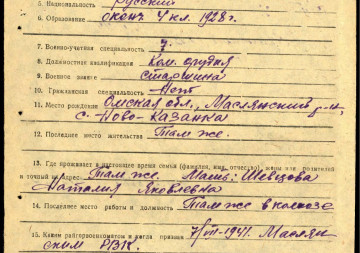 5. Национальность Русский
6. Образование оконч. 4 кл. 1928 г.
7. Военно-учетная специальность 7.
8. Должностная квалификация Ком. орудия
9. Военное звание старшина
10. Гражданская специальность Нет
11. Место рождения Омская обл., Маслянский р-н,
с. Ново-Казанка
12. Последнее место жительства Там же.
13. Где проживает в настоящее время семья (фамилия, имя, отчество) жены или родителей
и точный их адрес Там же. Мать: Шевцова
Наталия Яковлевна
14. Последнее место работы и должность Там же в колхозе
15. Каким райгорвоенкоматом и когда призван 7/VII-1941. Маслян
ским РВК.